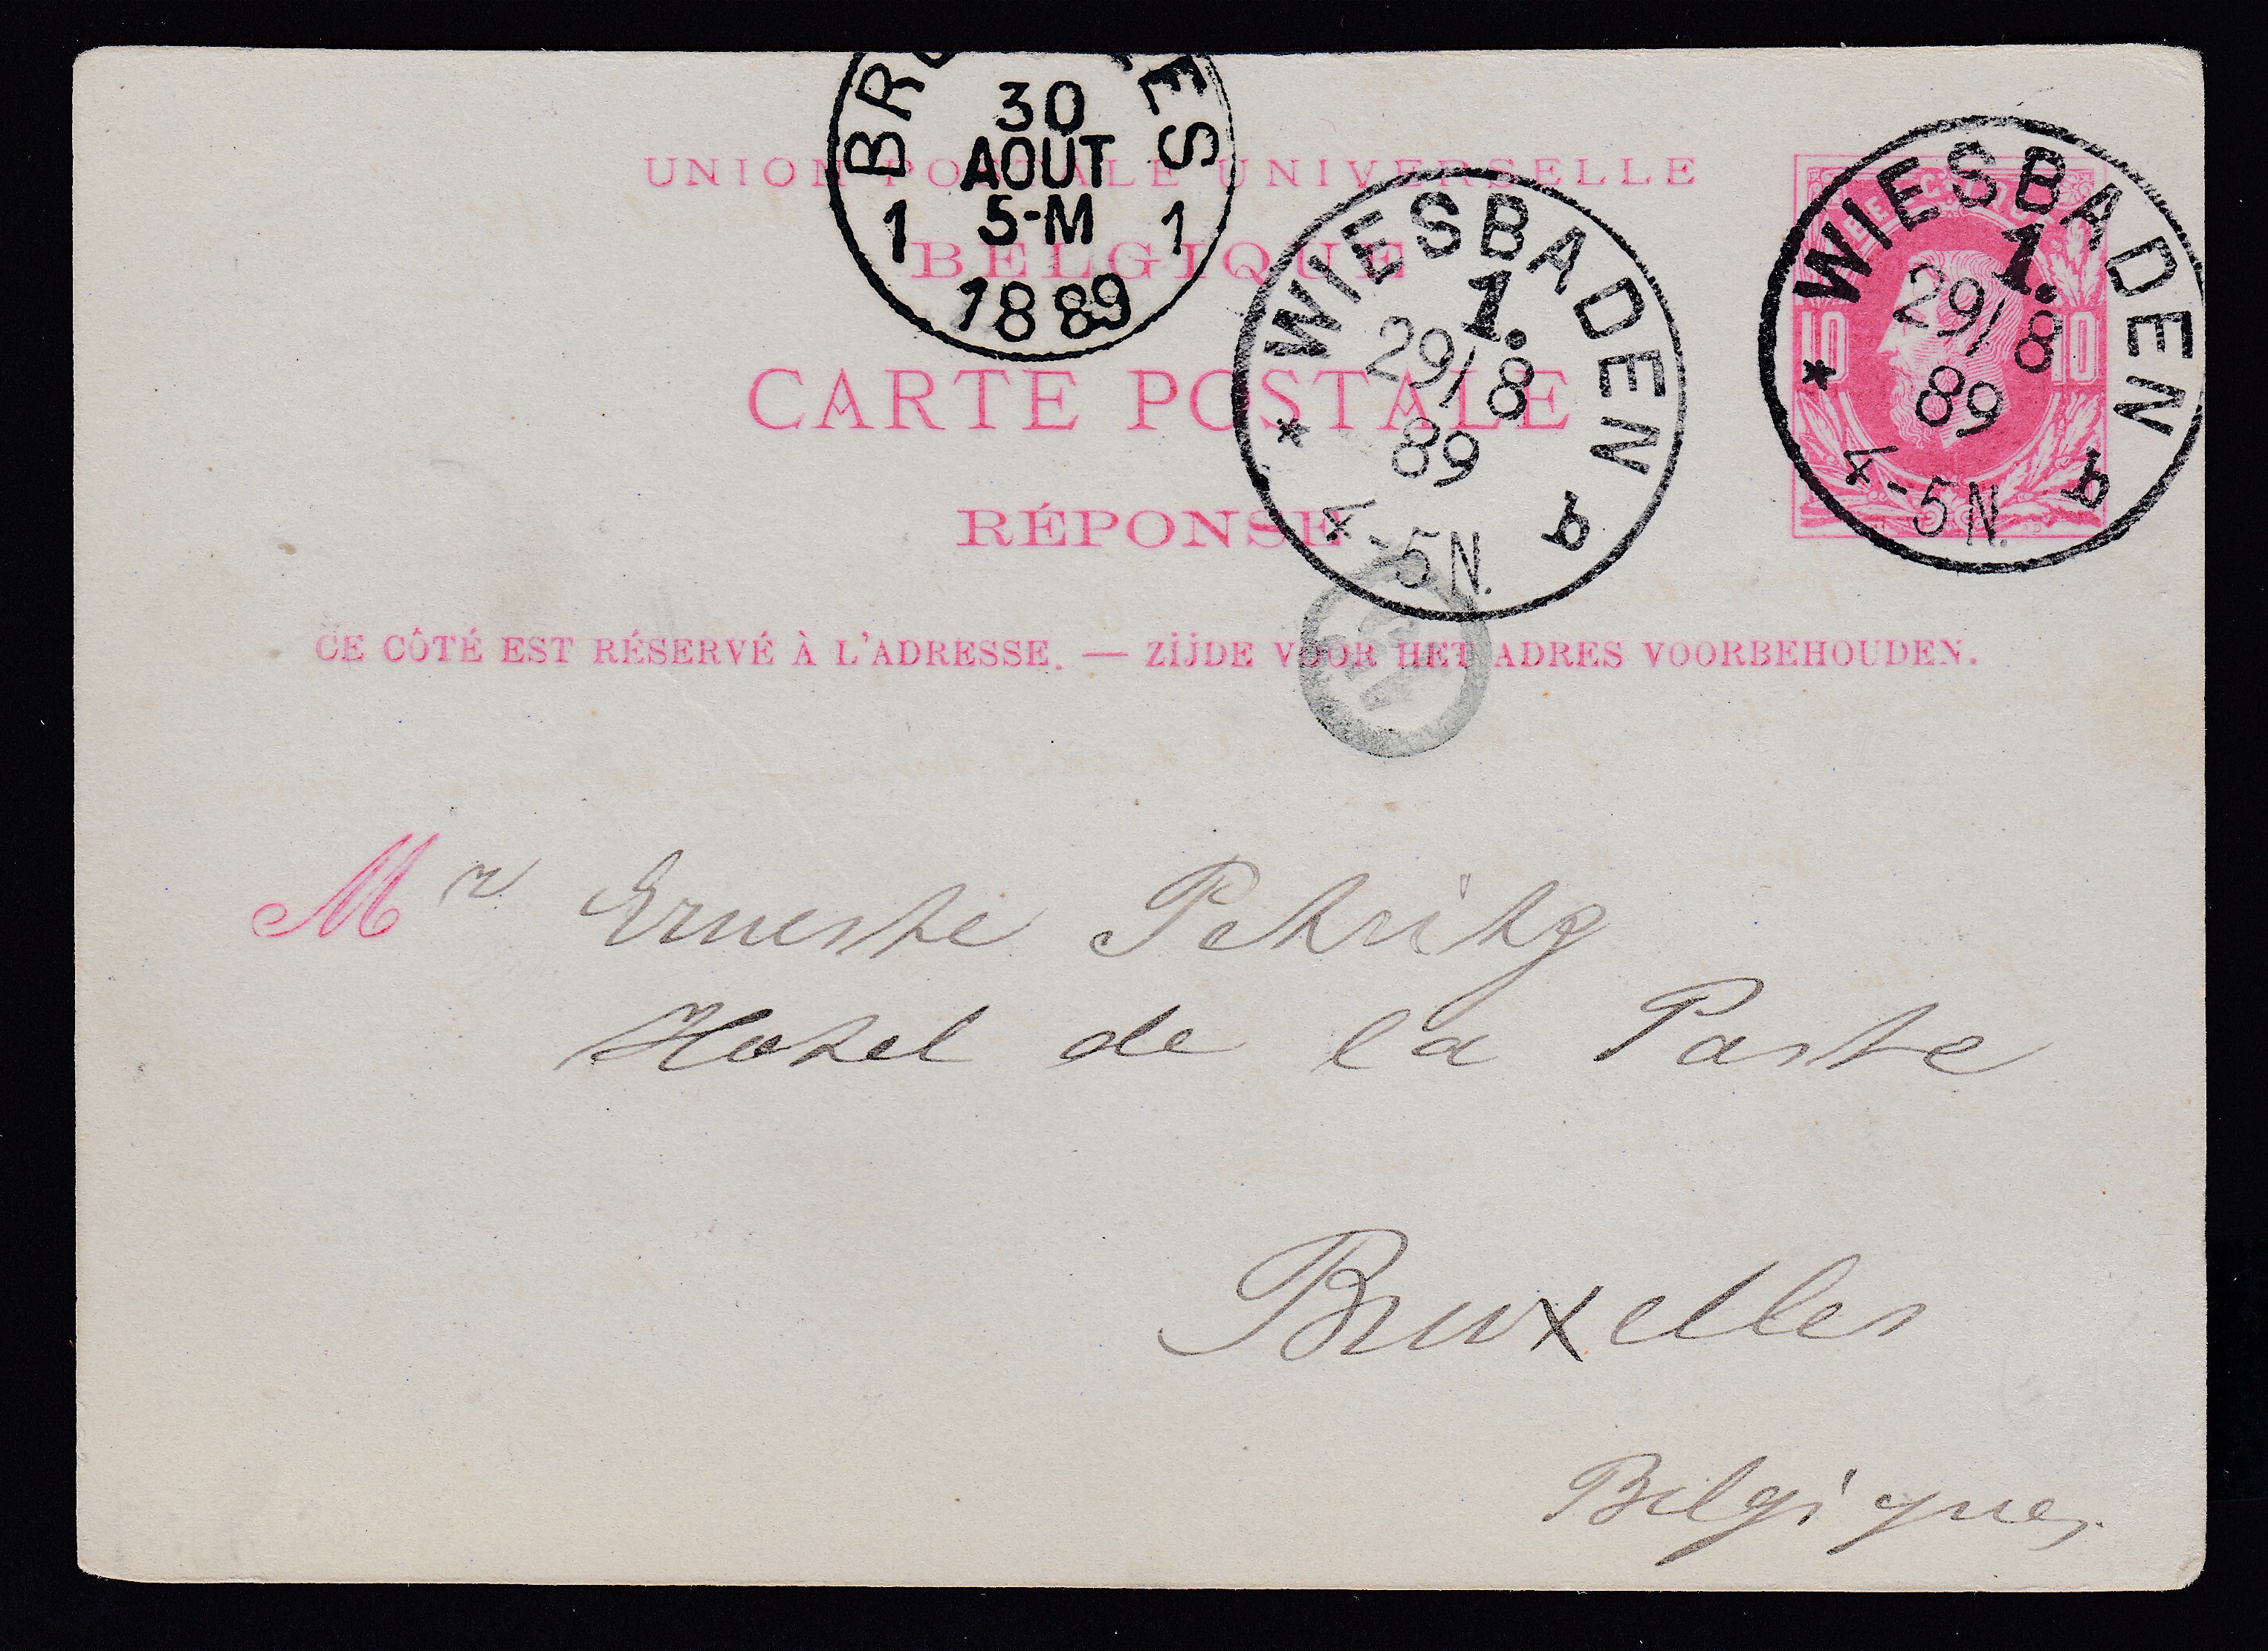 UNION POSTALE UNIVERSELLE
BELGIQUE
CARTE POSTALE
RÉPONSE
CE CÔTÉ EST RÉSERVÉ À L'ADRESSE. — ZIJDE VOOR HET ADRES VOORBEHOUDEN.
30
AOUT
5-M
1 1
1889
WIESBADEN
1.
29/8
89
* 4-5N. b
WIESBADEN
1.
29/8
89
* 4-5N. b
10 10
Mr Erneste Petritz
Hotel de la Poste
Bruxelles
Belgique